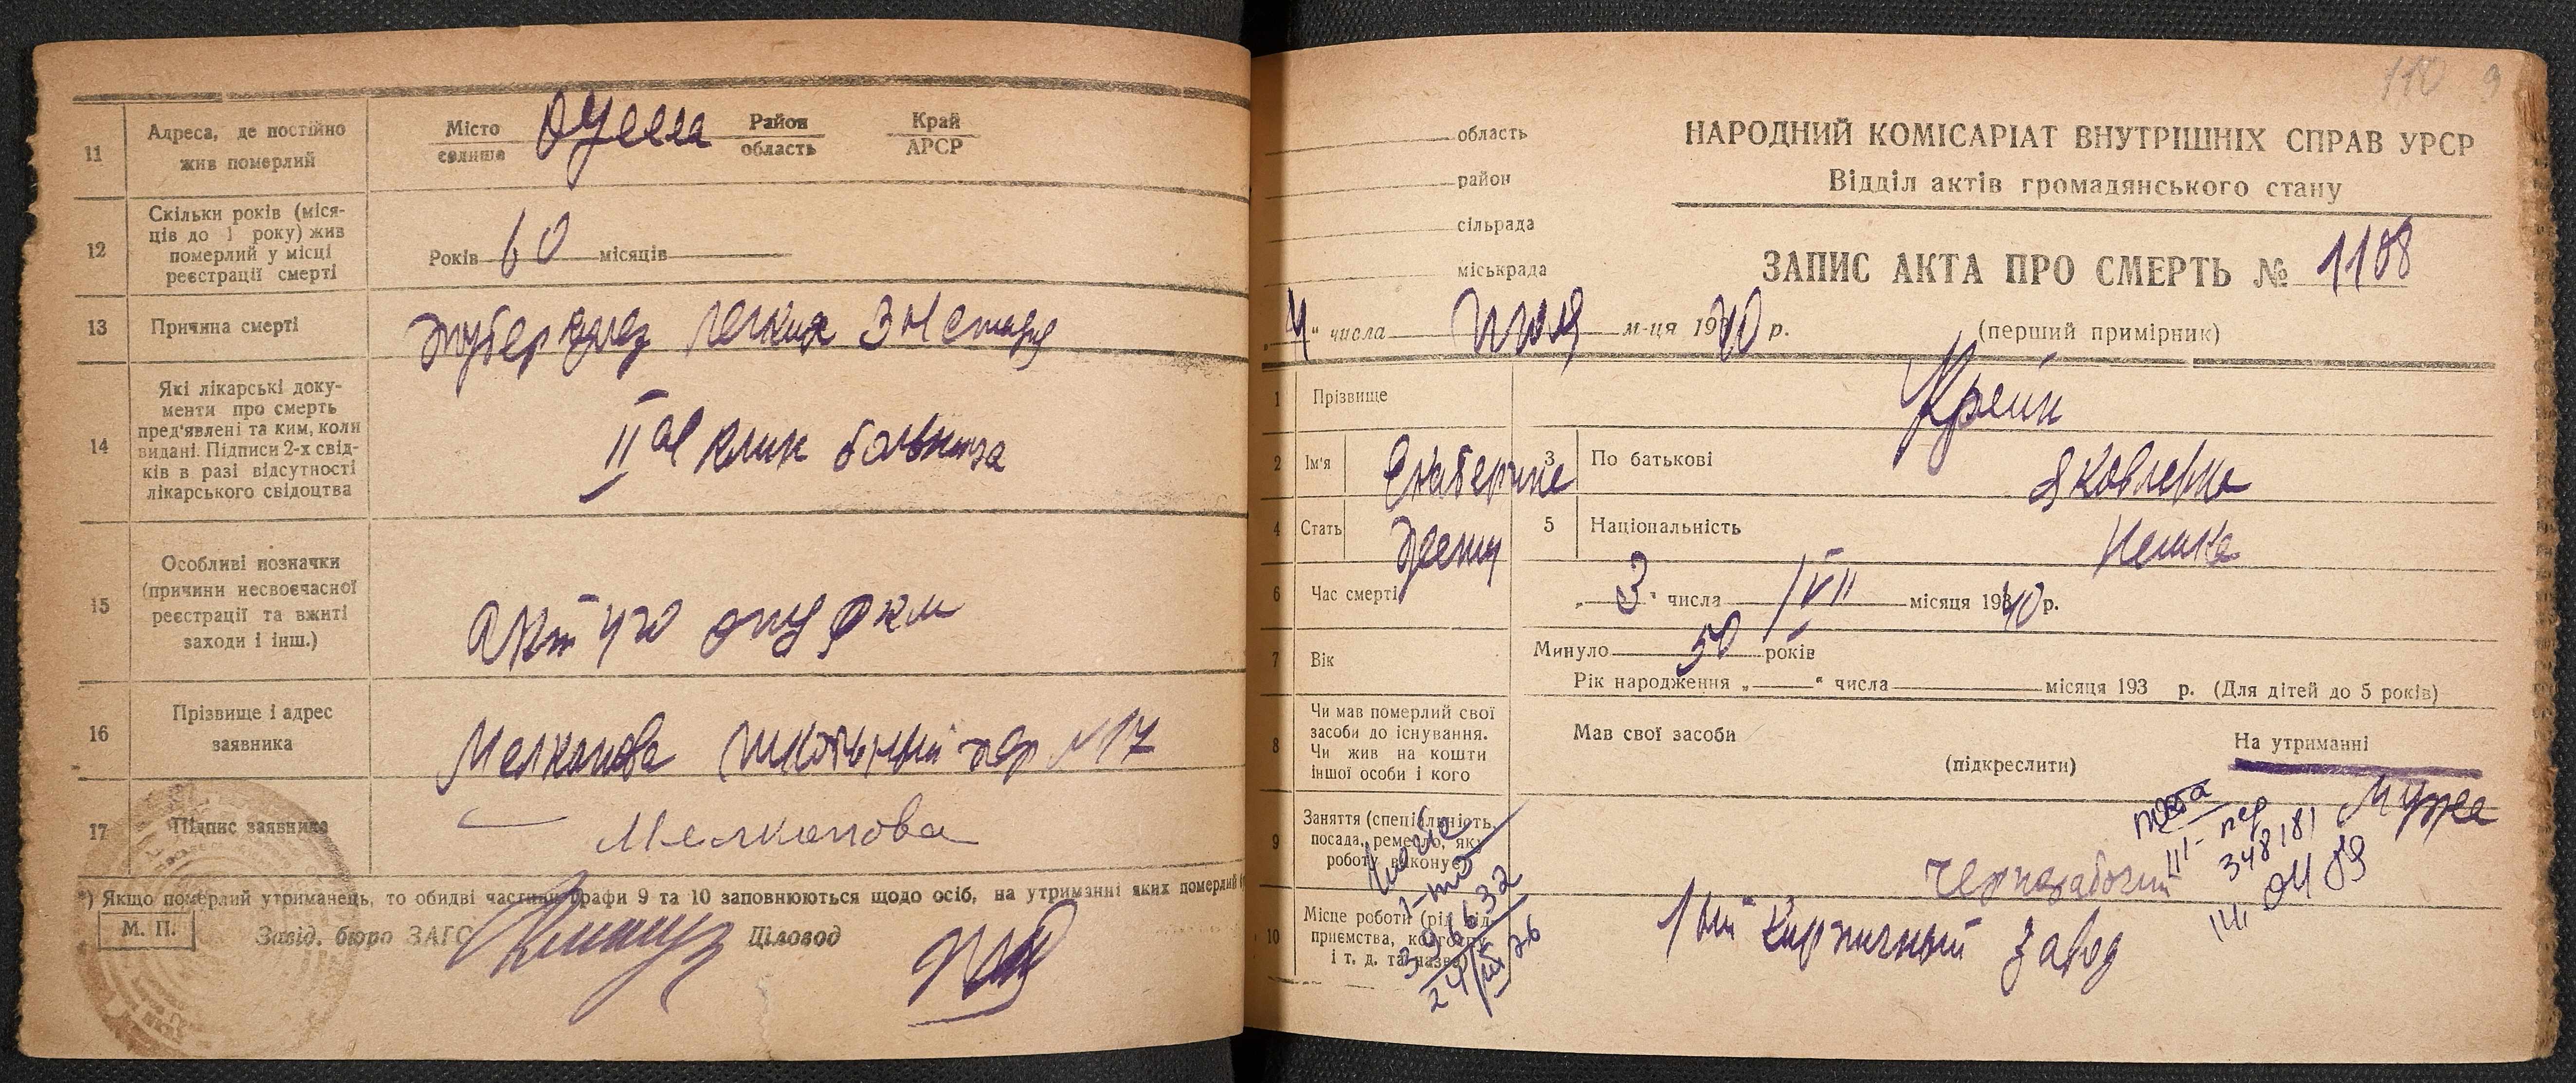 11
Адреса, де постійно
жив померлий
Місто
селище
Одесса
Район
область
Край
АРСР
12
Скільки років (міся-
ців до 1 року) жив
померлий у місці
реєстрації смерті
Років 60 місяців
13
Причина смерті
легких 3й стадия
14
Які лікарські доку-
менти про смерть
пред'явлені та ким, коли
видані. Підписи 2-х свід-
ків в разі відсутності
лікарського свідоцтва
II ая клин больница
15
Особливі позначки
(причини несвоєчасної
реєстрації та вжиті
заходи і інш.)
16
Прізвище і адрес
заявника
Мелконова Школьный пер №17
17
Підпис заявника
Мелконова
*) Якщо померлий утриманець, то обидві частини графи 9 та 10 заповнюються щодо осіб, на утриманні яких померлий
М. П.
Завід. бюро ЗАГС
Діловод
110 9
область
район
сільрада
міськрада
НАРОДНИЙ КОМІСАРІАТ ВНУТРІШНІХ СПРАВ УРСР
Відділ актів громадянського стану
ЗАПИС АКТА ПРО СМЕРТЬ № 1108
„4" числа июля м-ця 1940 р.
(перший примірник)
1
Прізвище
Крейн
2
Ім'я
Екатерине
3
По батькові
Яковлевна
4
Стать
женщ
5
Національність
Немка
6
Час смерті
„3" числа VII місяця 1940 р.
7
Вік
Минуло 50 років
Рік народження „ " числа місяця 193 р. (Для дітей до 5 років)
8
Чи мав померлий свої
засоби до існування.
Чи жив на кошти
іншої особи і кого
Мав свої засоби
(підкреслити)
На утриманні
Мужа
9
Заняття (спеціальність,
посада, ремесло, яку
роботу виконує)
чернорабочий
III - пер
348181
10
Місце роботи (рід під-
приємства, колгоспу
і т. д. та назва)
396632
1ый Кирпичный завод